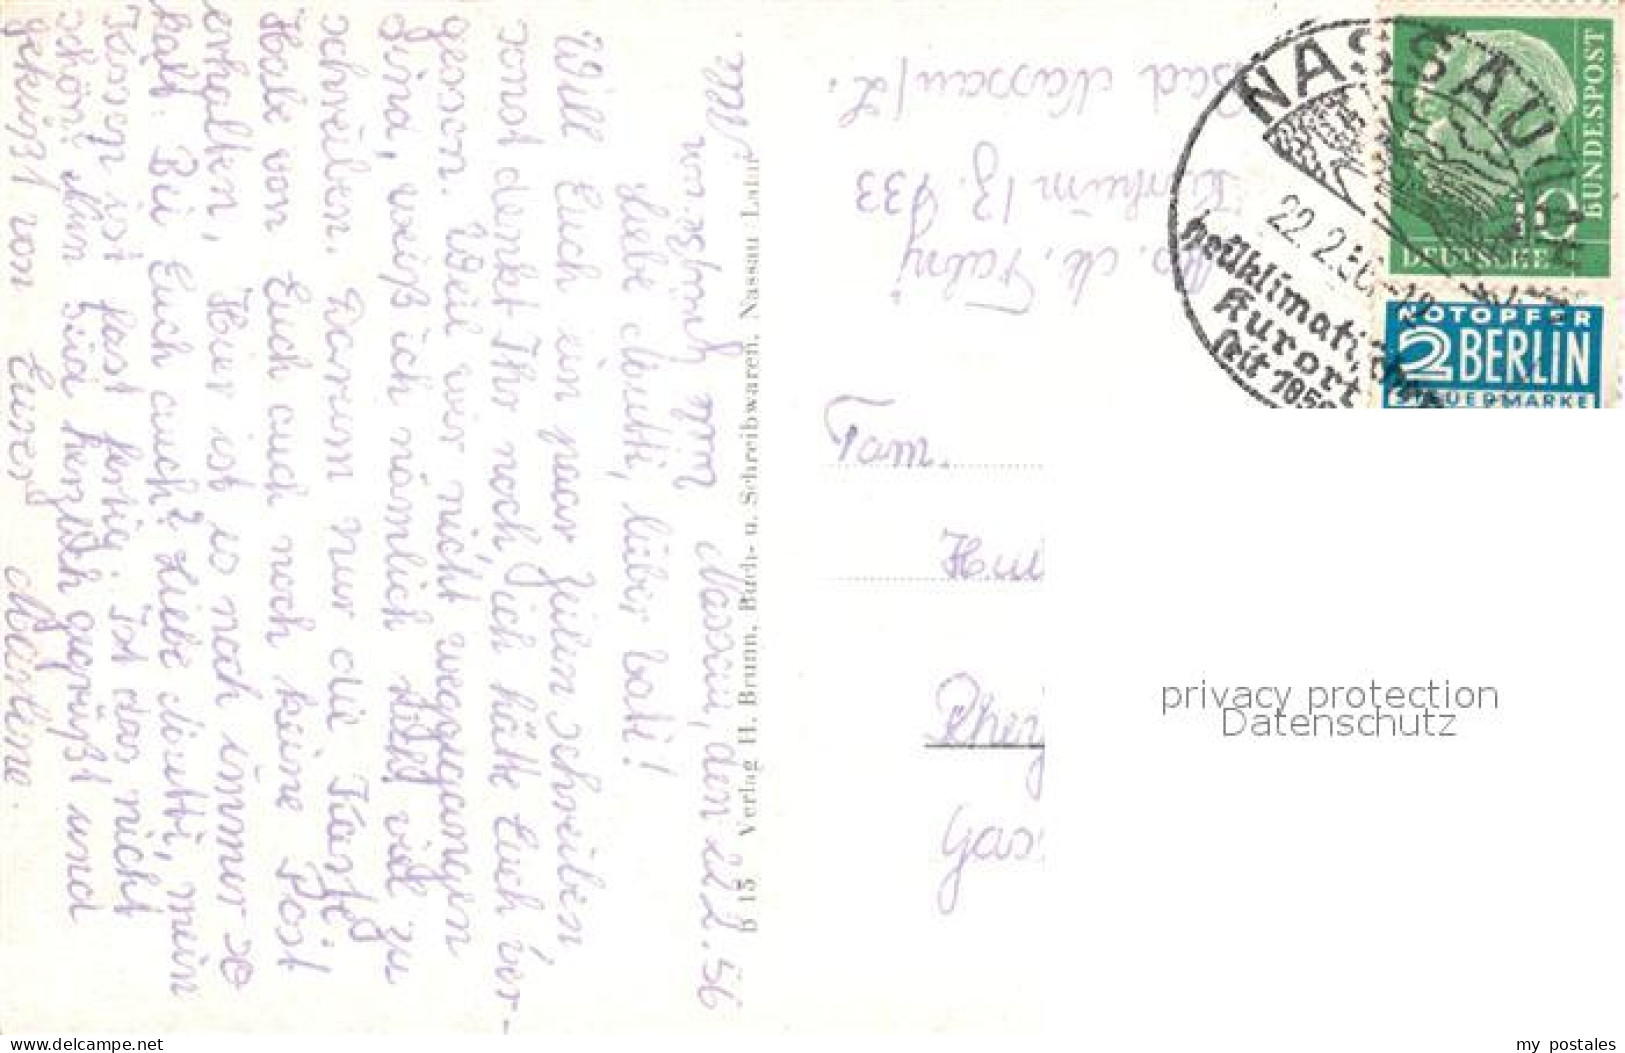 Nassau, den 22.2.56
Liebe Mutti, lieber Vati!
Will Euch ein paar Zeilen schreiben
sonst denkt Ihr noch ich hätte Euch ver-
gessen. Weil wir nicht weggegangen
sind, weiß ich nämlich nicht viel zu
schreiben. Darum nur die Karte.
Habe von Euch auch noch keine Post
erhalten, Hier ist es noch immer so
kalt. Bei Euch auch? Liebe Mutti, mein
Kissen ist fast fertig. Ist das nicht
schön? Nun seid herzlich gegrüßt und
geküßt von Eurer
B 15 Verlag H. Brunn, Buch- u. Schreibwaren, Nassau Lahn
Bad Nassau/L.
NASSAU
22.2.56
heilklimatischer
Kurort
seit 1856
10
DEUTSCHE
BUNDESPOST
NOTOPFER
2 BERLIN
STEUERMARKE
Fam.
privacy protection
Datenschutz
www.delcampe.net
my_postales